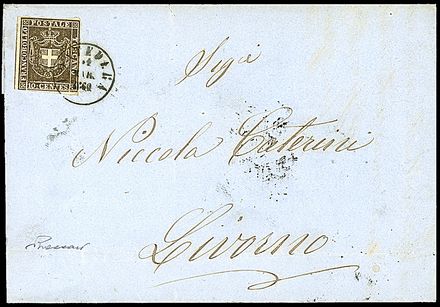 FRANCOBOLLO
POSTALE
TOSCANO
10 CENTES
Sig.r
Niccola Caterini
Livorno